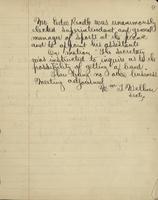 Mr. Peter Rindt was unanimously
elected Superintendent and general
manager of sports at the picnic
and to appoint his assistants
On motion The Secretary
was instructed to inquire as to the
possibility of getting a band.
There being no other business
Meeting adjourned
Secty